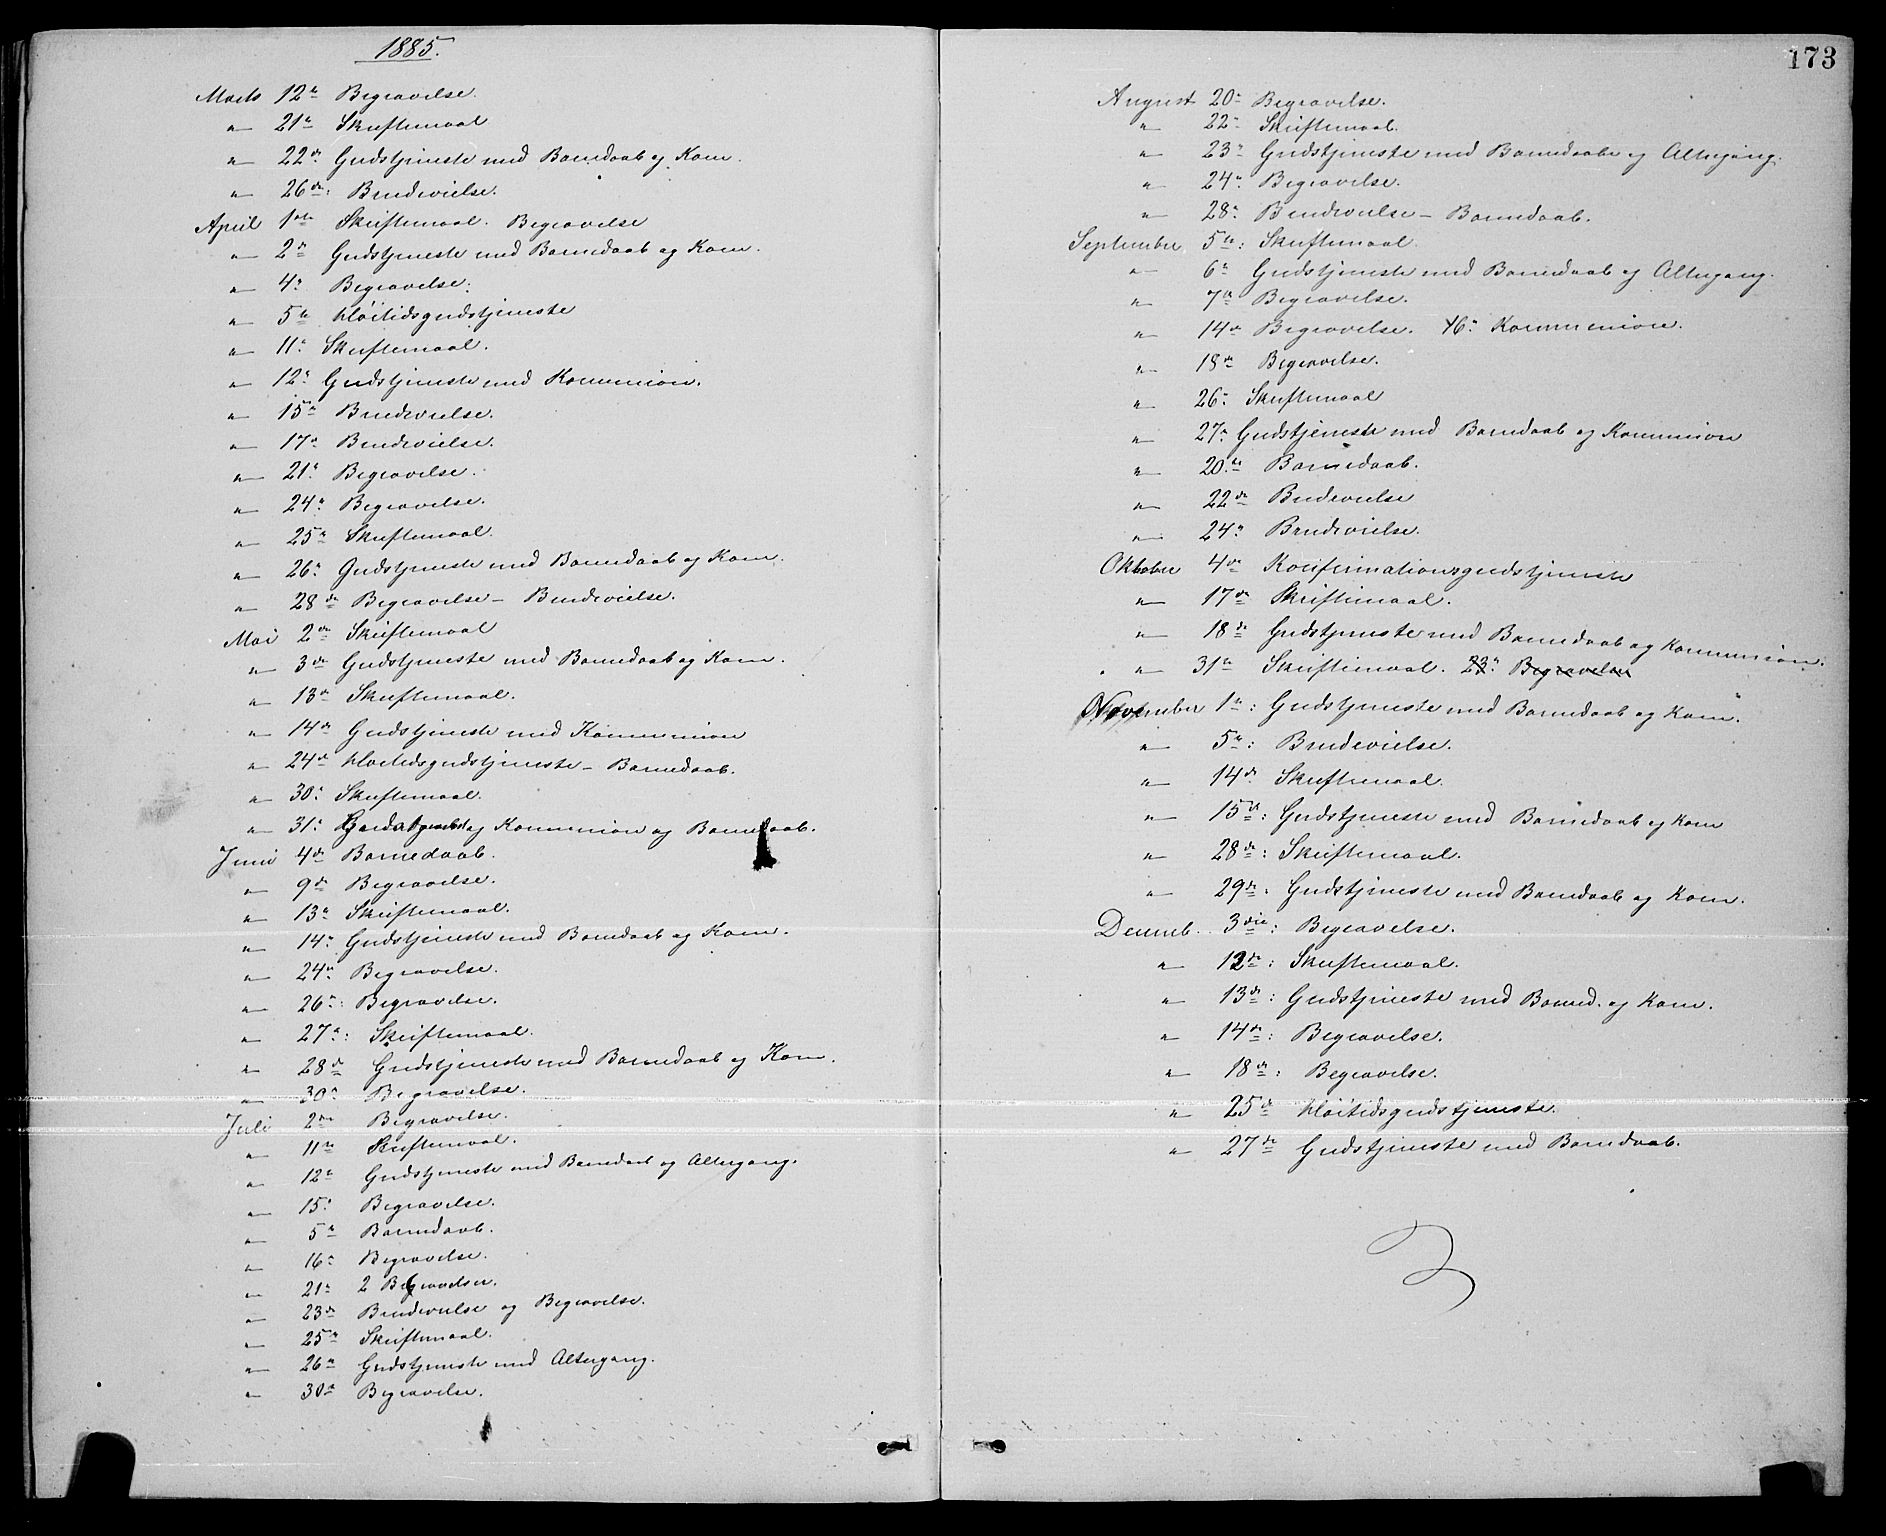 1885.
Marts 12te Begravelse.
" 21de Skriftemaal
" 22de Gudstjeneste med Barnedaab og Kom.
" 26de: Brudevielse.
April 1ste Skriftemaal. Begravelse
" 2de Gudstjeneste med Barnedaab og Kom.
" 4de Begravelse.
" 5te Høitidsgudstjeneste
" 11te Skriftemaal.
" 12te Gudstjeneste med Kommunion.
" 15de Brudevielse.
" 17de Brudevielse.
" 21de Begravelse.
" 24de Begravelse.
" 25de Skriftemaal.
" 26de Gudstjeneste med Barnedaab og Kom.
" 28de Begravelse – Brudevielse.
Mai 2den Skriftemaal
" 3die Gudstjeneste med Barnedaab og Kom.
" 13de Skriftemaal.
" 14de Gudstjeneste med Kommunion
" 24de Høitidsgudstjeneste – Barnedaab.
" 30te Skriftemaal.
" 31te og Kommunion og Barnedaab.
Juni 4de Barnedaab.
" 9de Begravelse.
" 13de Skriftemaal.
" 14de Gudstjeneste med Barnedaab og Kom.
" 24de Begravelse.
" 26de: Begravelse.
" 27de: Skriftemaal.
" 28de Gudstjeneste med Barnedaab og Kom.
" 30te Begravelse.
Juli 2den Begravelse.
" 11te Skriftemaal.
" 12te Gudstjeneste med Barnedaab og Altergang.
" 15de Begravelse.
" 5te Barnedaab.
" 16de Begravelse.
" 21de 2 Begravelser.
" 23de Brudevielse og Begravelse.
" 25de Skriftemaal.
" 26de Gudstjeneste med Altergang.
" 30te Begravelse.
173
August 20de Begravelse.
" 22de Skriftemaal.
" 23de Gudstjeneste med Barnedaab og Altergang.
" 24de Begravelse.
" 28de Brudevielse – Barnedaab.
September 5te: Skriftemaal.
" 6te Gudstjeneste med Barnedaab og Altergang.
" 7de Begravelse.
" 14de Begravelse. 16de Kommunion.
" 18de Begravelse.
" 26de Skriftemaal
" 27de Gudstjeneste med Barnedaab og Kommunion
" 20de Barnedaab.
" 22de Brudevielse
" 24de Brudevielse.
Oktober 4de Konfirmationsgudstjeneste
" 17de Skriftemaal.
" 18de Gudstjeneste med Barnedaab og Kommunion.
" 31te Skriftemaal. 23de Begravelse
November 1ste: Gudstjeneste med Barnedaab og Kom.
" 5te: Brudevielse.
" 14de Skriftemaal.
" 15de: Gudstjeneste med Barnedaab og Kom
" 28de: Skriftemaal.
" 29de: Gudstjeneste med Barnedaab og Kom.
Decemb. 3die: Begravelse.
" 12de: Skriftemaal.
" 13de: Gudstjeneste med Barned. og Kom.
" 14de: Begravelse.
" 18de: Begravelse.
" 25de Høitidsgudstjeneste.
" 27de Gudstjeneste med Barnedaab.